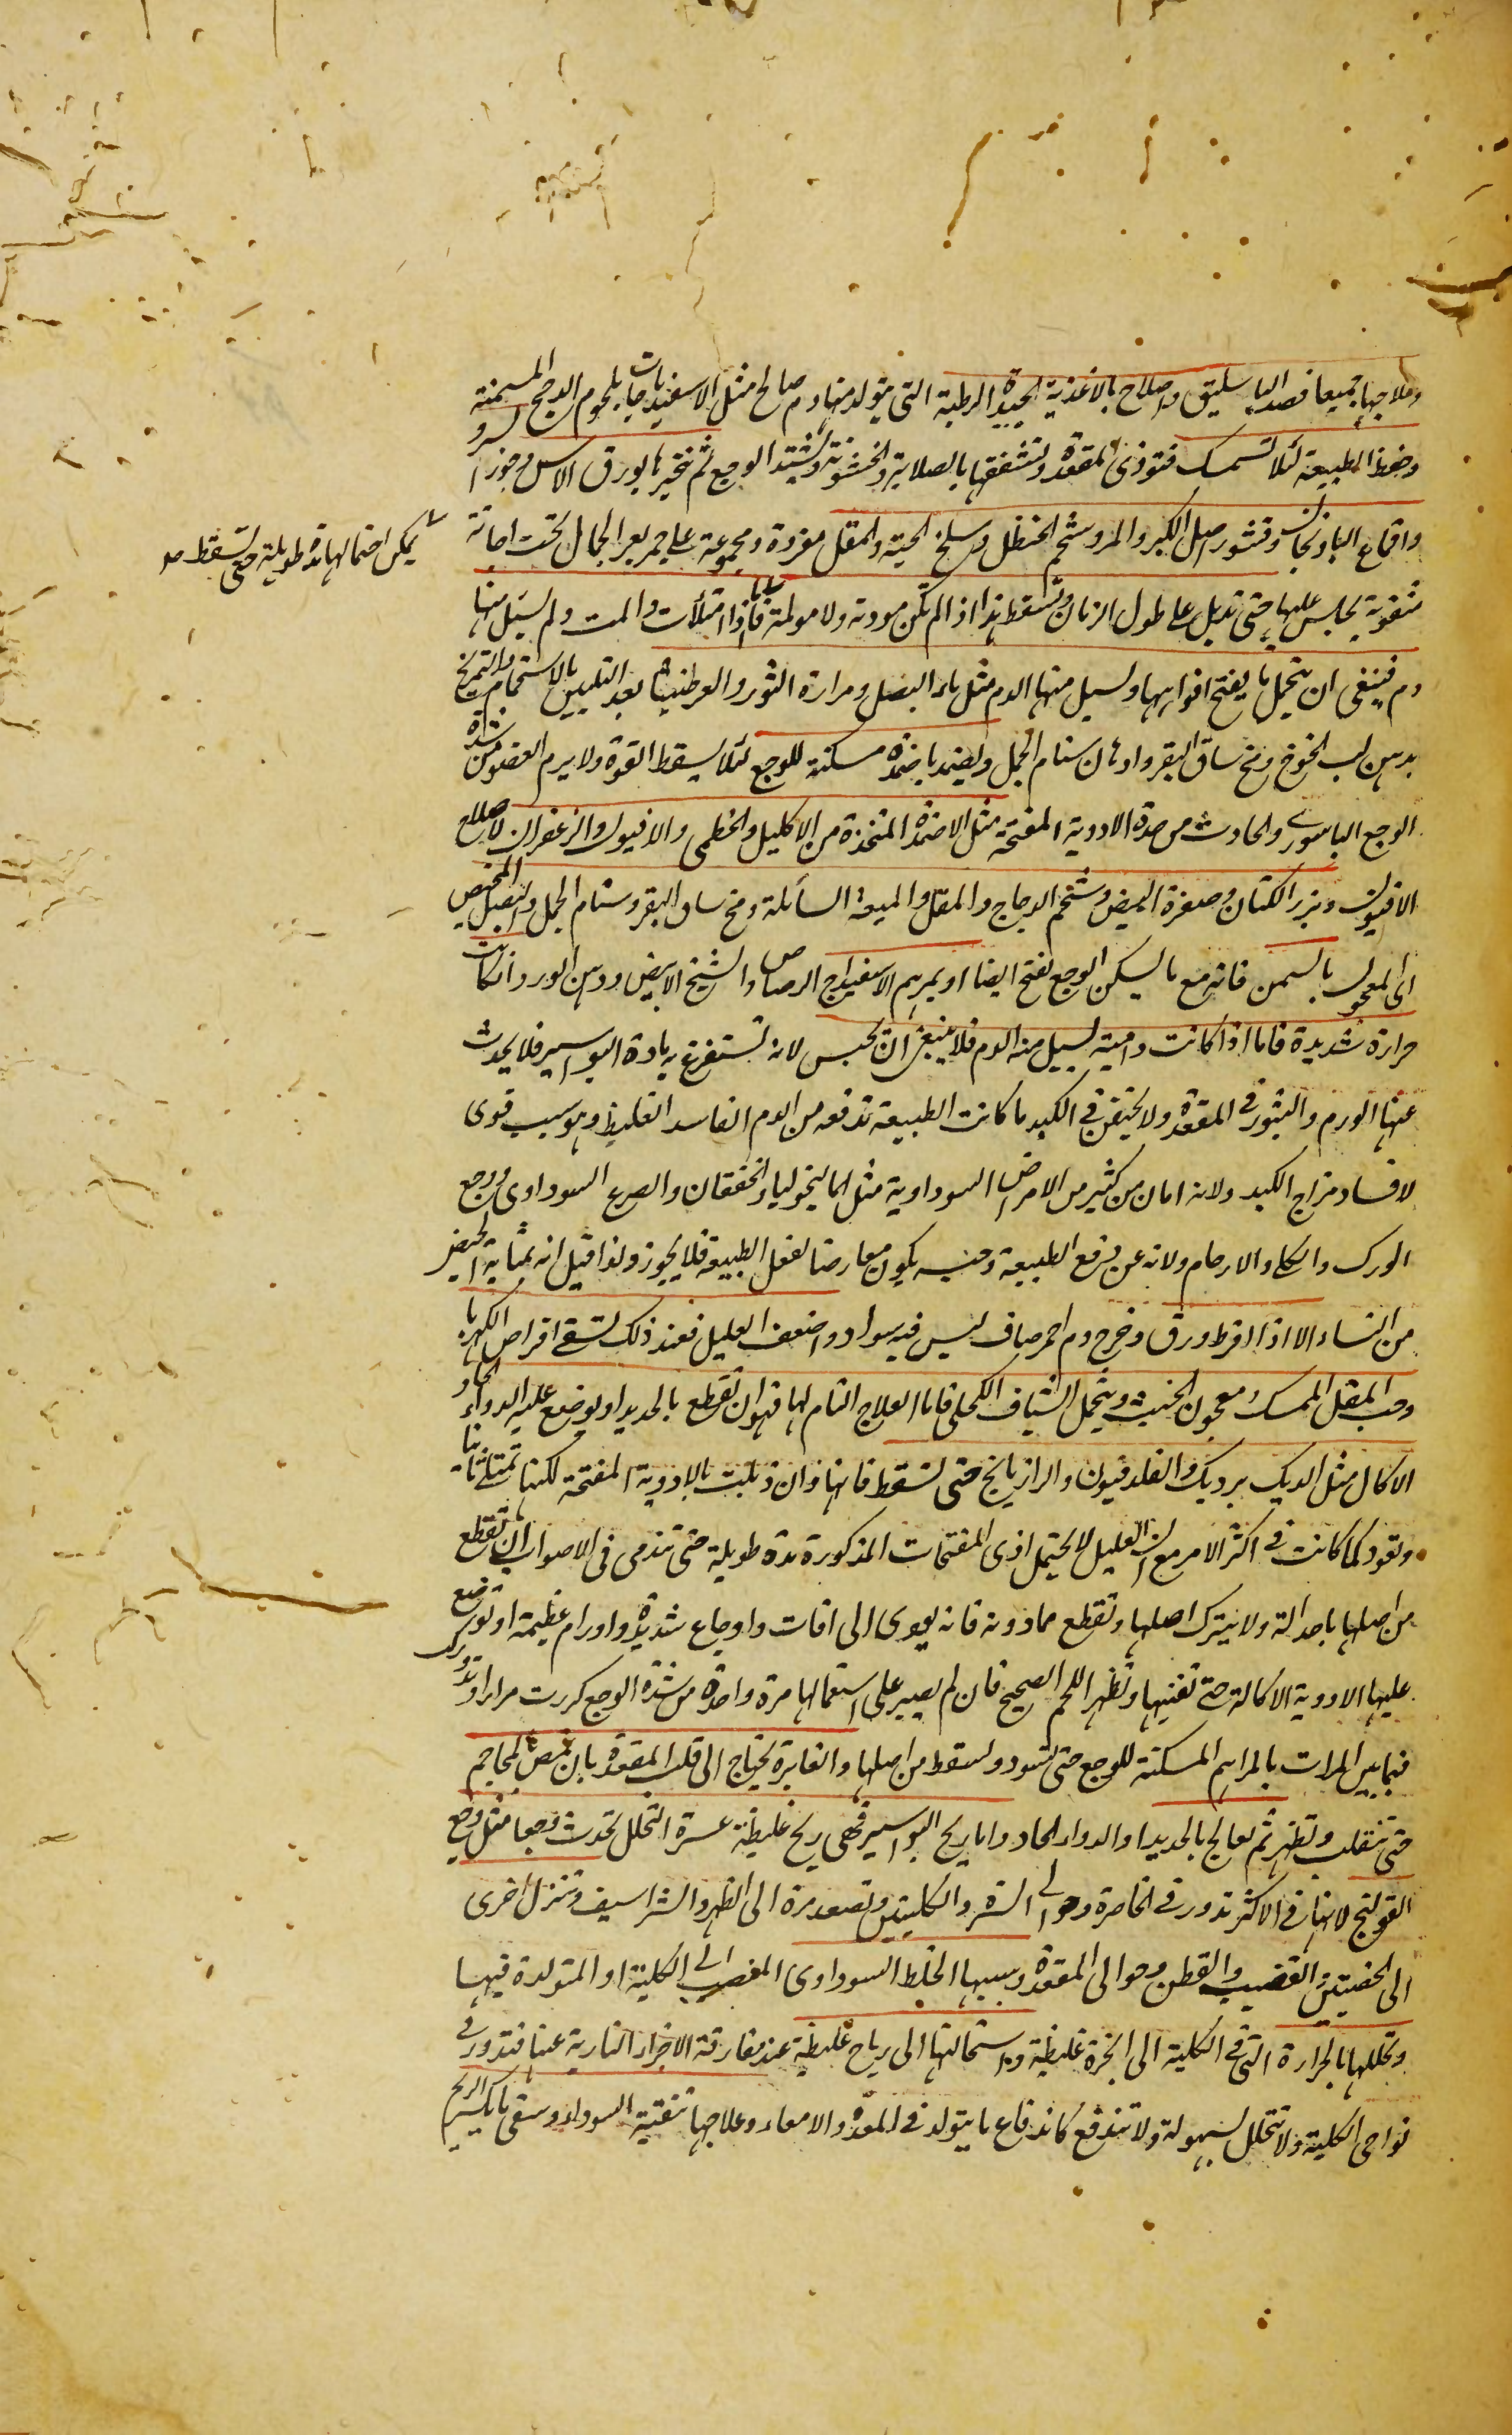 وعلاجها جميعا فصد الباسليق واصلاح بالاغذية الجيدة الرطبة التى يتولد منها دم صالح مثل الاسفيدباجات بلحوم الدجج المسمنة
وحفظ الطبيعة لئلا تستمسك فتوذى المقعدة وتشققها بالصلابة والخشونة ويشتد الوجع ثم تبخيرها بورق الاس وجوز السرو
واقماع الباذنجان وقشور اصل الكبر والمر وشحم الحنظل وسلخ الحية والمقل مفردة ومجموعة على جمر بعر الجمال تحت اجانة
مثقوبة يجلس عليها حتى تذبل على طول الزمان وتسقط هذا اذا لم تكن مودته ولا مولمة فاما اذا امتلأت والمت ولم يسيل منها
دم فينبغى ان يتحمل ما يفتح افواهها ويسيل منها الدم مثل ماء البصل ومرارة الثور والعرطنيثا بعد التليين بالاستحمام والتمريخ
بدهن لب الخوخ ومخ ساق البقر وادهان سنام الجمل ويضمد باضمدة مسكنة للوجع لئلا يسقط القوة ولا يرم العضو من شدة
الوجع الباسورى والحادث من حدة الادوية المفتحة مثل الاضمدة المتخذة من الاكليل والخطمى والافيون والزعفران لاصلاح
الافيون وبزر الكتان وصفرة البيض وشحم الدجاج والمقل والميعة السائلة ومخ ساق البقر وسنام الجمل والبصل المخبيص
اى المعمول بالسمن فانه مع ما يسكن الوجع يفتح ايضا او بمرهم الاسفيداج الرصاص والشيح الابيض ودهن الورد ان كانت
حرارة شديدة فاما اذا كانت دامية يسيل منه الدم فلا ينبغى ان تحبس لانه تستفرغ به مادة البواسير فلا يحدث
عنها الورم والبثور فى المقعدة ولا يحتقن فى الكبد ما كانت الطبيعة تدفعه من الدم الفاسد الغليظ وهو سبب قوى
لافساد مزاج الكبد ولانه امان من كثير من الامراض السوداوية مثل المالنخوليا والخفقان والصرع السوداوى ووجع
الورك والكلى والارحام ولانه عن دفع الطبيعة وحبسه يكون معارضا لفعل الطبيعة فلا يجوز ولذا قيل انه بمثابة الحيض
من النساء الا اذا افرط ورق وخرج دم احمر صاف ليس فيه سواد واضعف العليل فعند ذلك تسقى اقراص الكهربا
وحب المقل الممسك ومعجون الخبث ويتحمل الشياف الكحلى فاما العلاج التام لها فهو ان تقطع بالحديد او يوضع عليه الدواء الحاد
الاكال مثل الديك برديك والفلدفيون والرازيانج حتى تسقط فانها وان ذبلت بالادوية المفتحة لكنها تمتلى ثانيا
وتعود كما كانت فى اكثر الامر مع ان العليل لا يحتمل اذى المفتحات المذكورة مدة طويلة حتى تندمى فى الاصوب ان تقطع
من اصلها باحد الة ولا يترك اصلها وتقطع مما دونه فانه يودى الى افات واوجاع شديدة واورام عظيمة او توضع
عليها الادوية الاكالة حتى تفنيها وتظهر اللحم الصحيح فان لم يصبر على استعمالها مرة واحدة من شدة الوجع كررت مرارا وتدورك
فيما بين المرات بالمراهم المسكنة للوجع حتى تسود وتسقط من اصلها والغايرة يحتاج الى قلب المقعدة بان تمص بالمحاجم
حتى تنقلب وتظهر ثم يعالج بالحديد او الدواء الحاد واما ريح البواسير فهى ريح غليظة عسرة التحلل تحدث وجعا مثل وجع
القولنج لانها فى الاكثر تدور فى الخاصرة وحوالى السرة والكليتين وتصعد مرة الى الظهر والشراسيف وتنزل اخرى
الى الخصيتين والقضيب والقطن وحوالى المقعدة وسببها الخلط السوداوى المنصب الى الكلية او المتولدة فيها
وتحللها بالحرارة التى فى الكلية الى ابخرة غليظة واستحالتها الى رياح غليظة عند مفارقة الاجزاء النارية عنها فتدور فى
نواحى الكلية ولا تتحلل بسهولة ولا تندفع كاندفاع ما يتولد فى المعدة والامعاء وعلاجها تنقية السوداء وسقى ما يكسر الريح
يمكن احتمالها مدة طويلة حتى تسقط